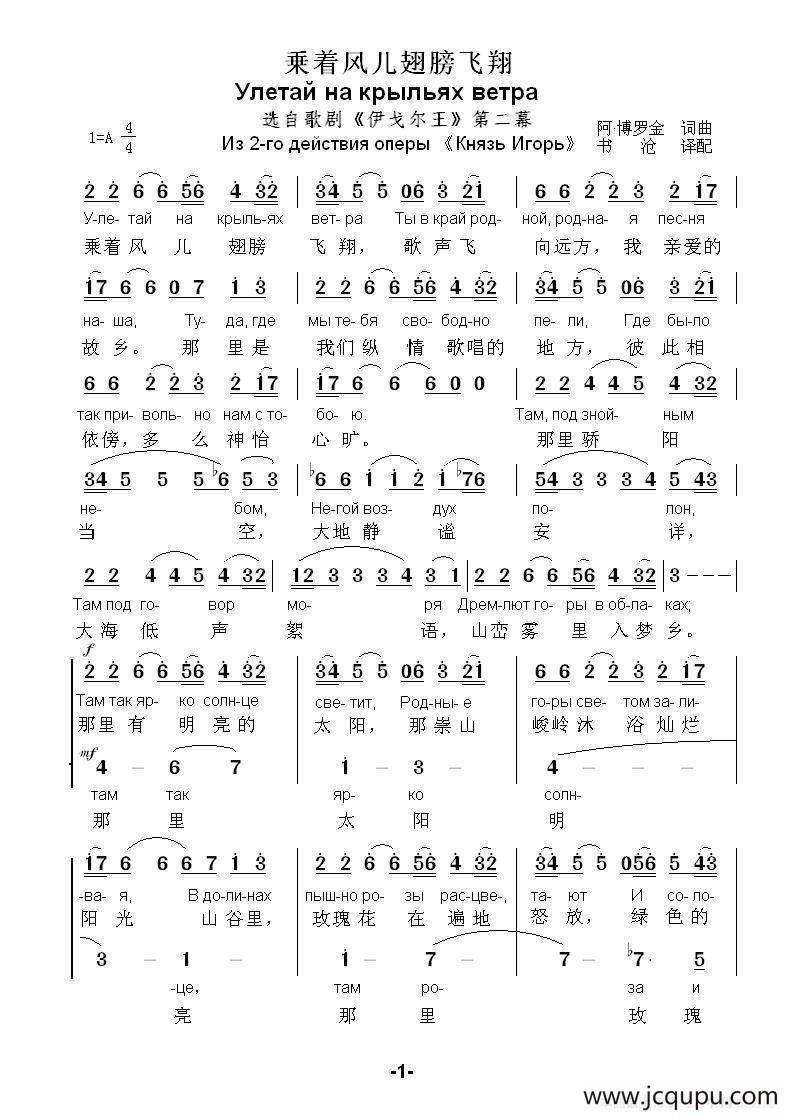 乘着风儿翅膀飞翔
Улетай на крыльях ветра
选自歌剧《伊戈尔王》第二幕
1=A 4/4
Из 2-го действия оперы 《Князь Игорь》
阿·博罗金 词曲
书 沧 译配
2 2 6 6 56 4 32 | 34 5 5 06 3 21 | 6 6 2 2 3 2 17 |
У-ле- тай на крыль-ях вет- ра Ты в край род- ной, род-на- я пес-ня
乘着风 儿 翅膀 飞 翔， 歌 声飞 向远方，我 亲爱的
17 6 6 0 7 1 3 | 2 2 6 6 56 4 32 | 34 5 5 06 3 21 |
на- ша, Ту- да, где мы те-бя сво- бод-но пе- ли, Где бы-ло
故 乡。 那 里是 我们纵 情歌唱的 地 方， 彼 此相
6 6 2 2 3 2 17 | 17 6 6 6 0 0 | 2 2 4 4 5 4 32 |
так при- воль- но нам с то- бо- ю. Там, под зной- ным
依傍，多 么 神怡 心 旷。 那里骄 阳
34 5 5 5 5 ♭6 5 3 | ♭6 6 1 1 2 1 ♭76 | 54 3 3 3 4 5 43 |
не- бом, Не-гой воз- дух по- лон,
当 空， 大地静 谧 安 详，
2 2 4 4 5 4 32 | 12 3 3 3 4 3 1 | 2 2 6 6 56 4 32 | 3 — — — |
Там под го- вор мо- ря Дрем-лют го- ры в об-ла- ках;
大海低 声 絮 语，山峦雾 里 入梦 乡。
f
2 2 6 6 56 4 32 | 34 5 5 06 3 21 | 6 6 2 2 3 2 17 |
Там так яр- ко солн-це све- тит, Род-ны- е го-ры све- том за-ли-
那里有 明 亮的 太 阳， 那崇山 峻岭沐 浴灿烂
mf
4 — 6 7 | 1 — 3 — | 4 — — — |
там так яр- ко солн-
那 里 太 阳 明
17 6 6 6 7 1 3 | 2 2 6 6 56 4 32 | 34 5 5 056 5 43 |
-ва-я, В до-ли-нах пыш-но ро- зы рас-цве-, та- ют И со-ло-
阳 光 山谷里， 玫瑰花 在 遍地 怒 放， 绿 色的
3 — 1 — | 1 — 7 — | 7 — ♭7· 5
-це, там ро- за и
亮 那 里 玫 瑰
-1-
www.jcqupu.com